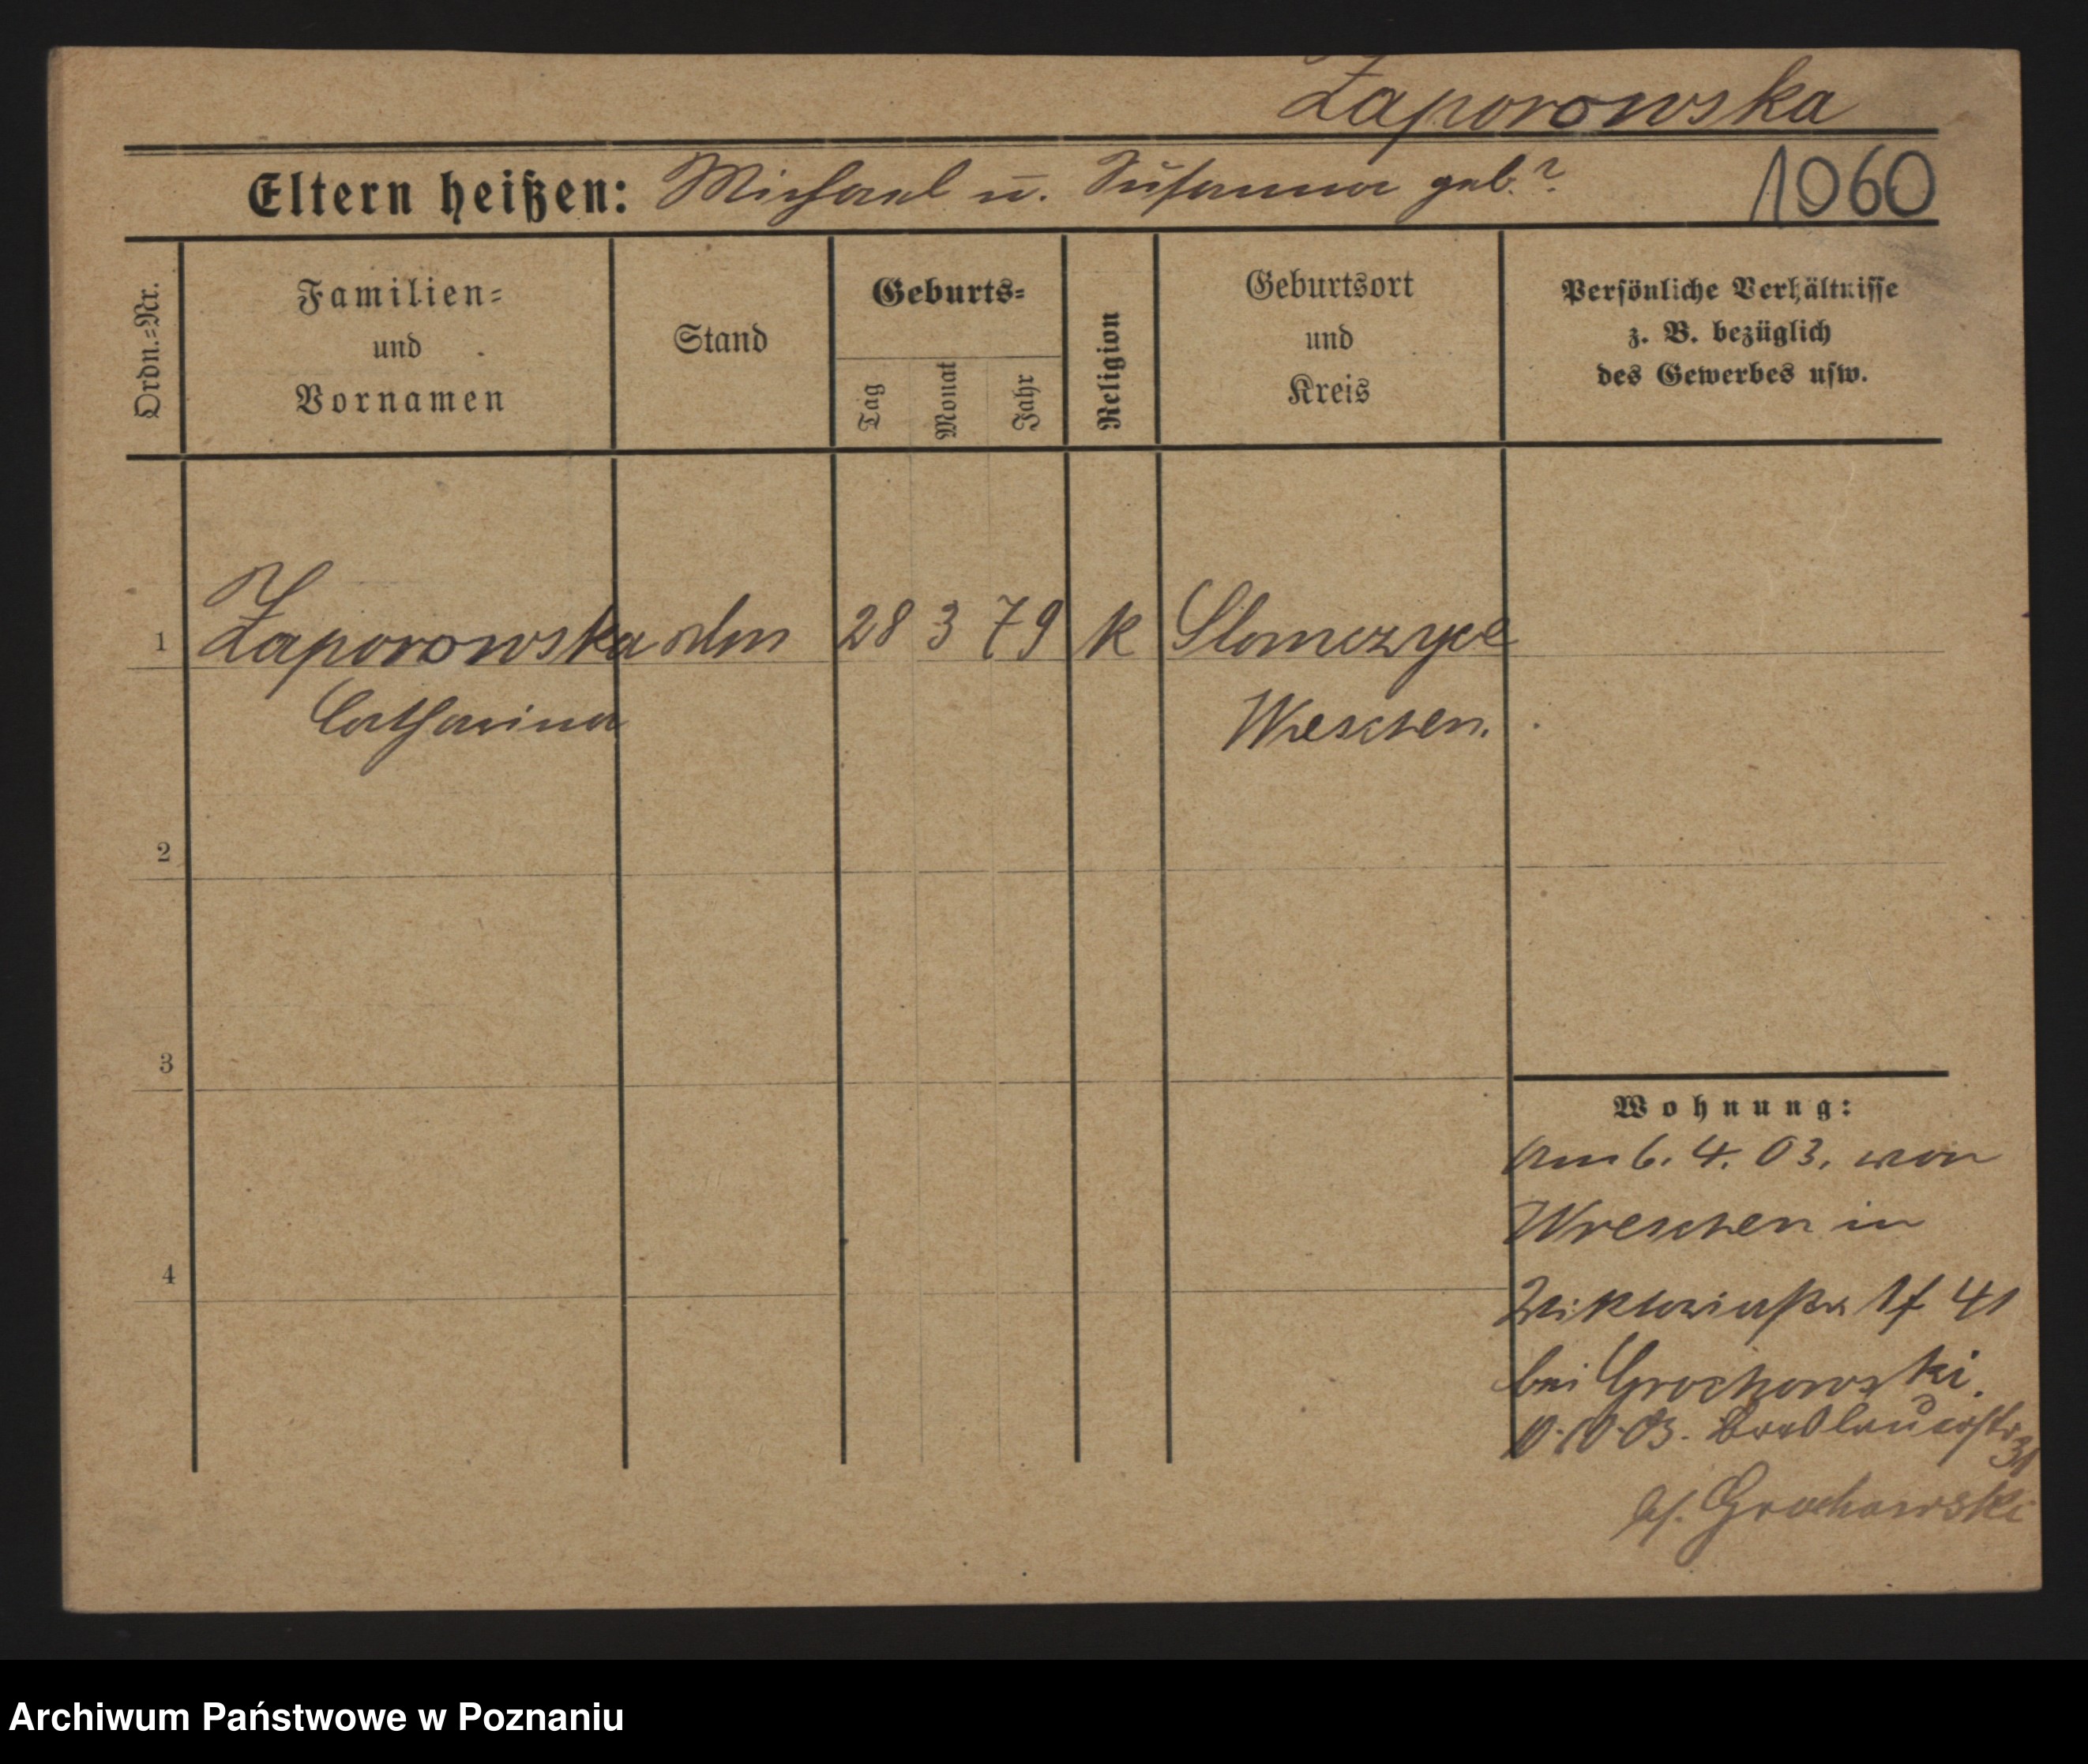 Zaporowska
Eltern heißen: Michael u. Susanna geb.?
1060
Ordn.=Nr.
Familien=
und
Vornamen
Stand
Geburts=
Tag
Monat
Jahr
Religion
Geburtsort
und
Kreis
Persönliche Verhältnisse
z. B. bezüglich
des Gewerbes usw.
1 Zaporowska 28 3 79 k Slomczyce
Catharina Wreschen.
2
3
4
Wohnung:
Am 6. 4. 03. von
Wreschen in
Viktoriastr. 41
bei Grochowski.
10.03. Breslauerstr
31
b/. Grochowski
Archiwum Państwowe w Poznaniu